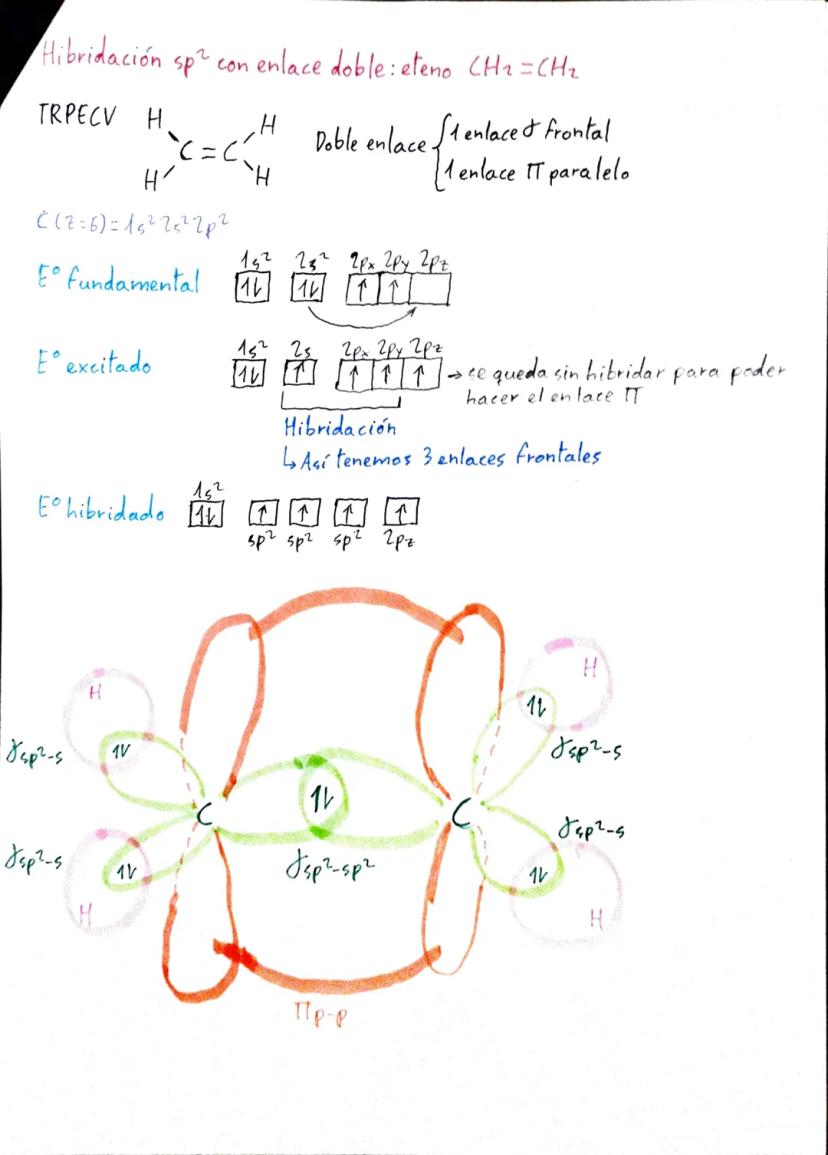 Hibridación sp² con enlace doble: eteno CH₂=CH₂
TRPECV
H H
C=C
H H
Doble enlace { 1 enlace σ frontal
1 enlace π paralelo
C(Z=6)=1s²2s²2p²
1s² 2s² 2px 2py 2pz
Eº fundamental ↑↓ ↑↓ ↑ ↑
1s² 2s 2px 2py 2pz
Eº excitado ↑↓ ↑ ↑ ↑ ↑ → se queda sin hibridar para poder
hacer el enlace π
Hibridación
↳ Así tenemos 3 enlaces frontales
1s²
Eº hibridado ↑↓ ↑ ↑ ↑ ↑
sp² sp² sp² 2pz
H H
↑↓
σsp²-s ↑↓ σsp²-s
C ↑↓ C
σsp²-s σsp²-s
↑↓ σsp²-sp² ↑↓
H H
πp-p